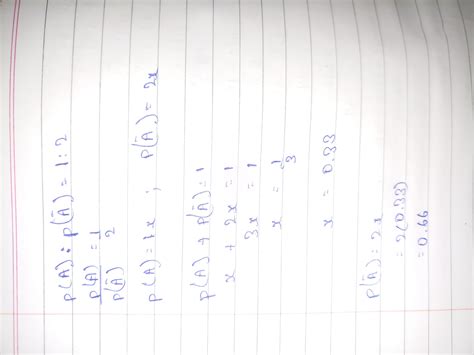 P(A) : P(Ā) = 1 : 2
P(A)/P(Ā) = 1/2
P(A) = 1x ; P(Ā) = 2x
P(A) + P(Ā) = 1
x + 2x = 1
3x = 1
x = 1/3
x = 0.33
P(Ā) = 2x
= 2(0.33)
= 0.66